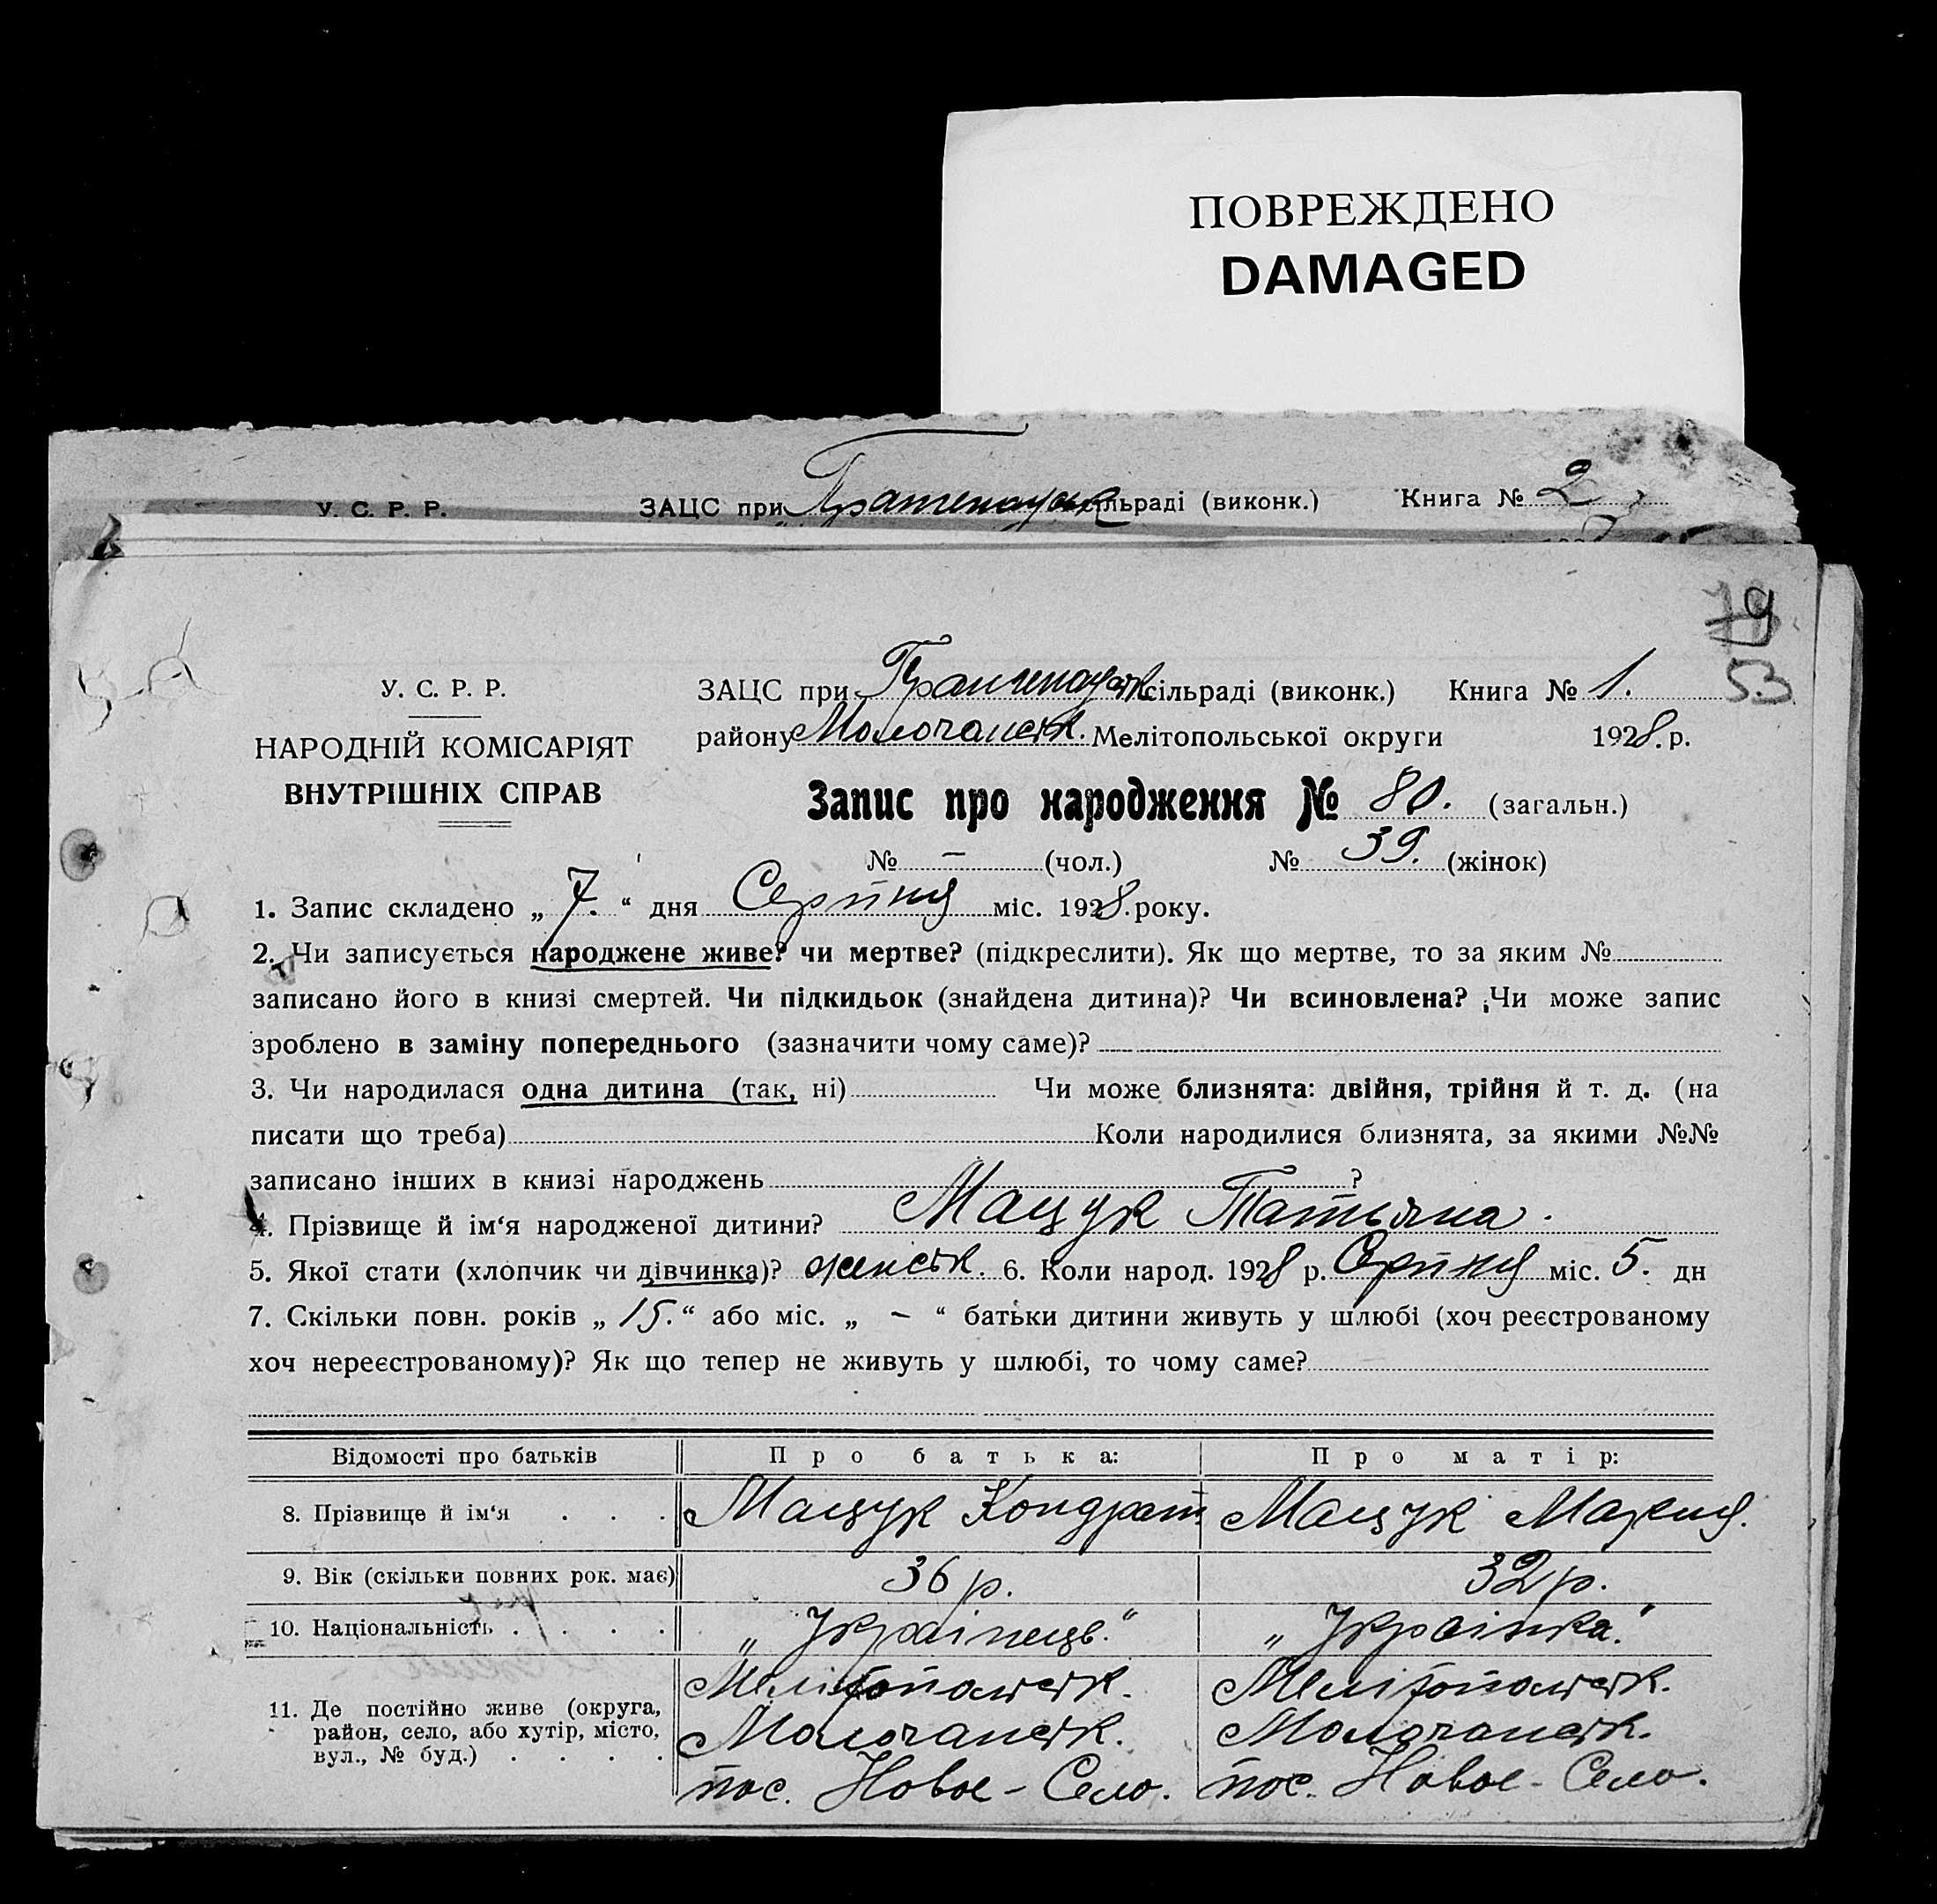 ПОВРЕЖДЕНО
DAMAGED
У. С. Р. Р. ЗАЦС при сільраді (виконк.) Книга № 2
79
53
У. С. Р. Р.
НАРОДНІЙ КОМІСАРІЯТ
ВНУТРІШНІХ СПРАВ
ЗАЦС при сільраді (виконк.) Книга № 1.
району Молочанськ. Мелітопольської округи 1928. р.
Запис про народження № 80. (загальн.)
№ – (чол.) № 39. (жінок)
1. Запис складено „ 7. “ дня Серпня міс. 1928. року.
2. Чи записується народжене живе? чи мертве? (підкреслити). Як що мертве, то за яким №
записано його в книзі смертей. Чи підкидьок (знайдена дитина)? Чи всиновлена? Чи може запис
зроблено в заміну попереднього (зазначити чому саме)?
3. Чи народилася одна дитина (так, ні) Чи може близнята: двійня, трійня й т. д. (на
писати що треба) Коли народилися близнята, за якими №№
записано інших в книзі народжень ?
4. Прізвище й ім‘я народженої дитини? Мацук Татьяна.
5. Якої стати (хлопчик чи дівчинка)? женськ. 6. Коли народ. 1928 р. Серпня міс. 5. дн
7. Скільки повн. років „ 15. “ або міс. „ – “ батьки дитини живуть у шлюбі (хоч реєстрованому
хоч нереєстрованому)? Як що тепер не живуть у шлюбі, то чому саме?
Відомості про батьків Про батька: Про матір:
8. Прізвище й ім‘я . . . Мацук Кондрат Мацук Мария.
9. Вік (скільки повних рок. має) 36 р. 32 р.
10. Національність . . . . „Українець.“ „Українка.“
11. Де постійно живе (округа,
район, село, або хутір, місто,
вул., № буд.) . . . .
Мелітопольськ. Мелітопольськ.
Молочанськ. Молочанськ.
пос. Новое-Село. пос. Новое-Село.